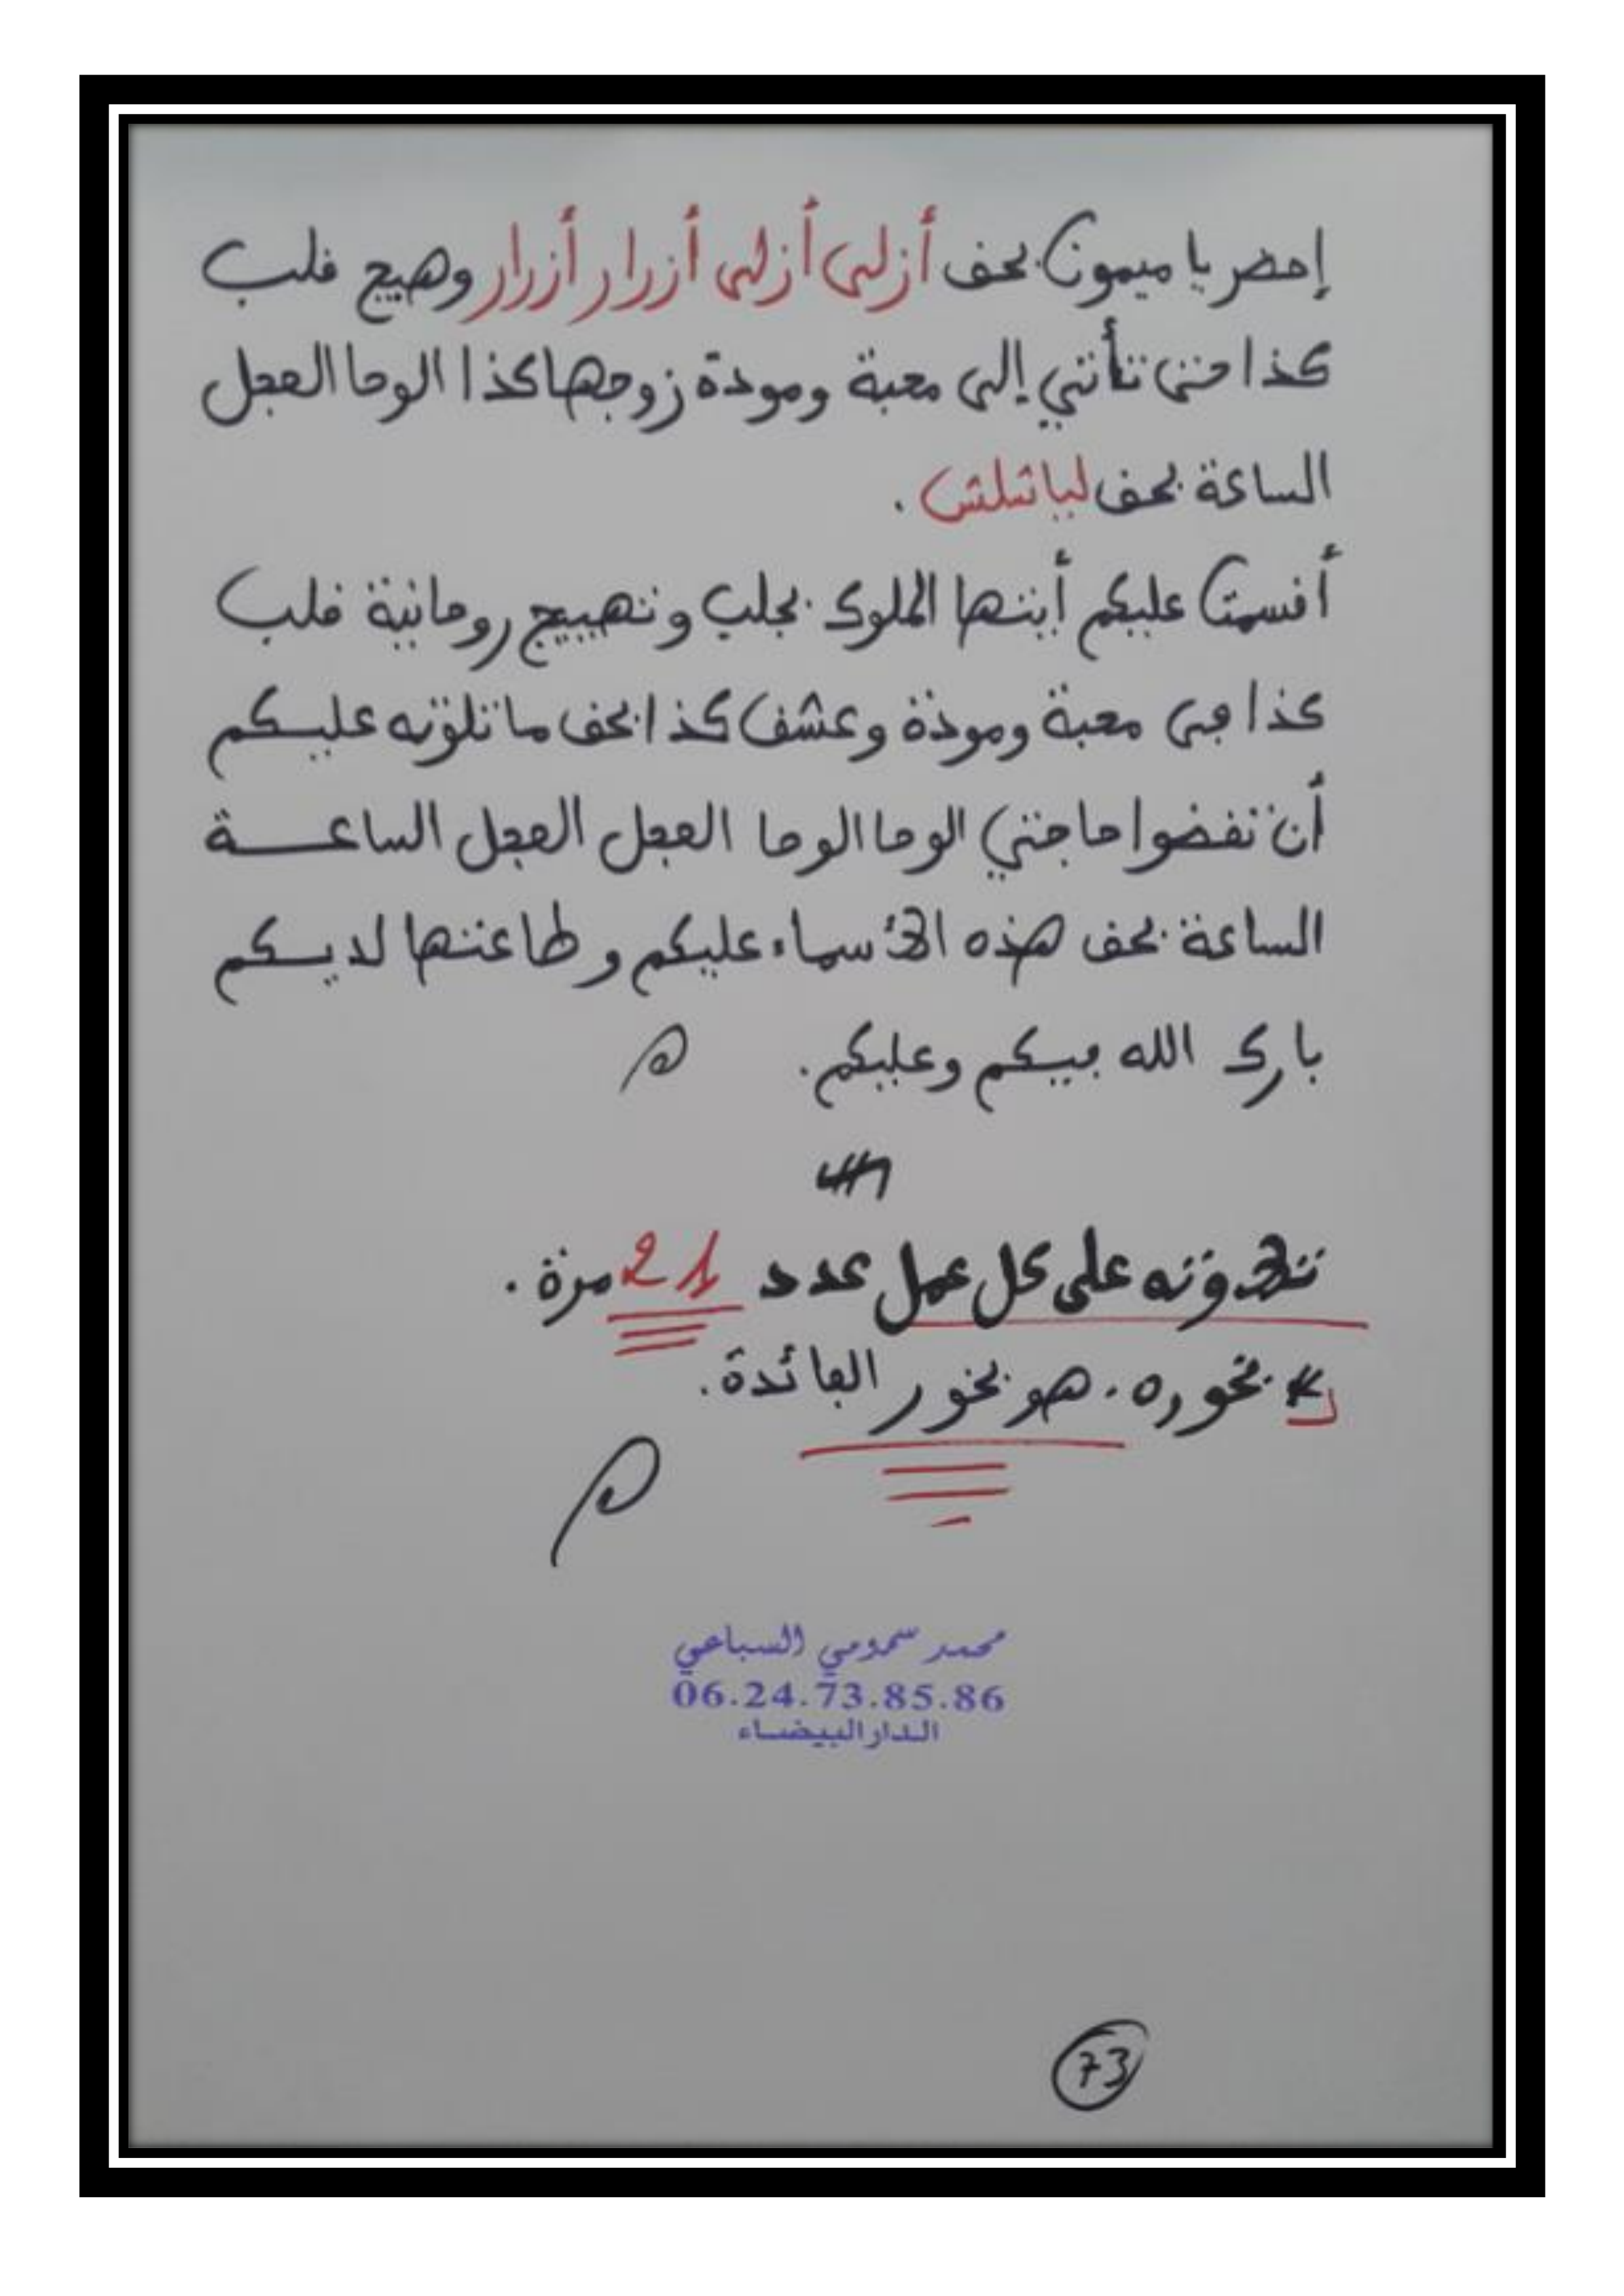 إحضر يا ميمون بحق أزلى أزلى أزرار أزرار وهيج قلب
كذا حتى تأتي إلى محبة ومودة زوجها كذا الوحا العجل
الساعة بحق لياشلش .
أقسمت عليكم أيتها الملوك بجلب وتهييج روحانية قلب
كذا في محبة ومودة وعشق كذا بحق ما تلوته عليكم
أن تقضوا حاجتي الوحا الوحا العجل العجل الساعة
الساعة بحق هذه الأسماء عليكم وطاعتها لديكم
بارك الله فيكم وعليكم.
تتلاوته على كل عمل عدد 21 مرة .
بخوره . هو بخور الفائدة .
محمد سمومي السباعي
06.24.73.85.86
الدار البيضاء
73